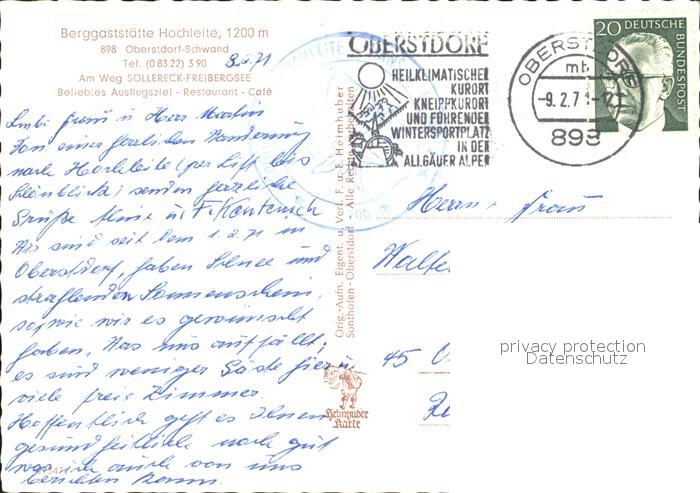 Berggaststätte Hochleite, 1200 m
898 Oberstdorf-Schwand
Tel. (0 83 22) 3 90
Am Weg SÖLLERECK-FREIBERGSEE
Beliebtes Ausflugsziel - Restaurant - Café
71
Liebe Frau u Herr Martin
Von einer herzlichen Wanderung
nach Hochleite (per Lift bis
Schönblick) senden herzliche
Grüße u F.
Wir sind seit dem 1 2 71 in
Oberstdorf, haben Schnee und
strahlenden Sonnenschein,
so wie wir es gewünscht
haben. Was uns auffällt:
es sind weniger Gäste hier u
viele freie Zimmer.
Hoffentlich geht es Ihnen
gesundheitlich noch gut
was ich auch von uns
berichten kann.
Orig.-Aufn. Eigent. u. Verl. F. u. E. Heimhuber
Sonthofen-Oberstdorf - Alle Rechte vorbehalten
Heimhuber
Karte
OBERSTDORF
HEILKLIMATISCHER
KURORT
KNEIPPKURORT
UND FÜHRENDER
WINTERSPORTPLATZ
IN DER
ALLGÄUER ALPEN
OBERSTDORF
mb
-9. 2. 71-12
898
20 DEUTSCHE
BUNDESPOST
Herrn + Frau
Walte
45
privacy protection
Datenschutz